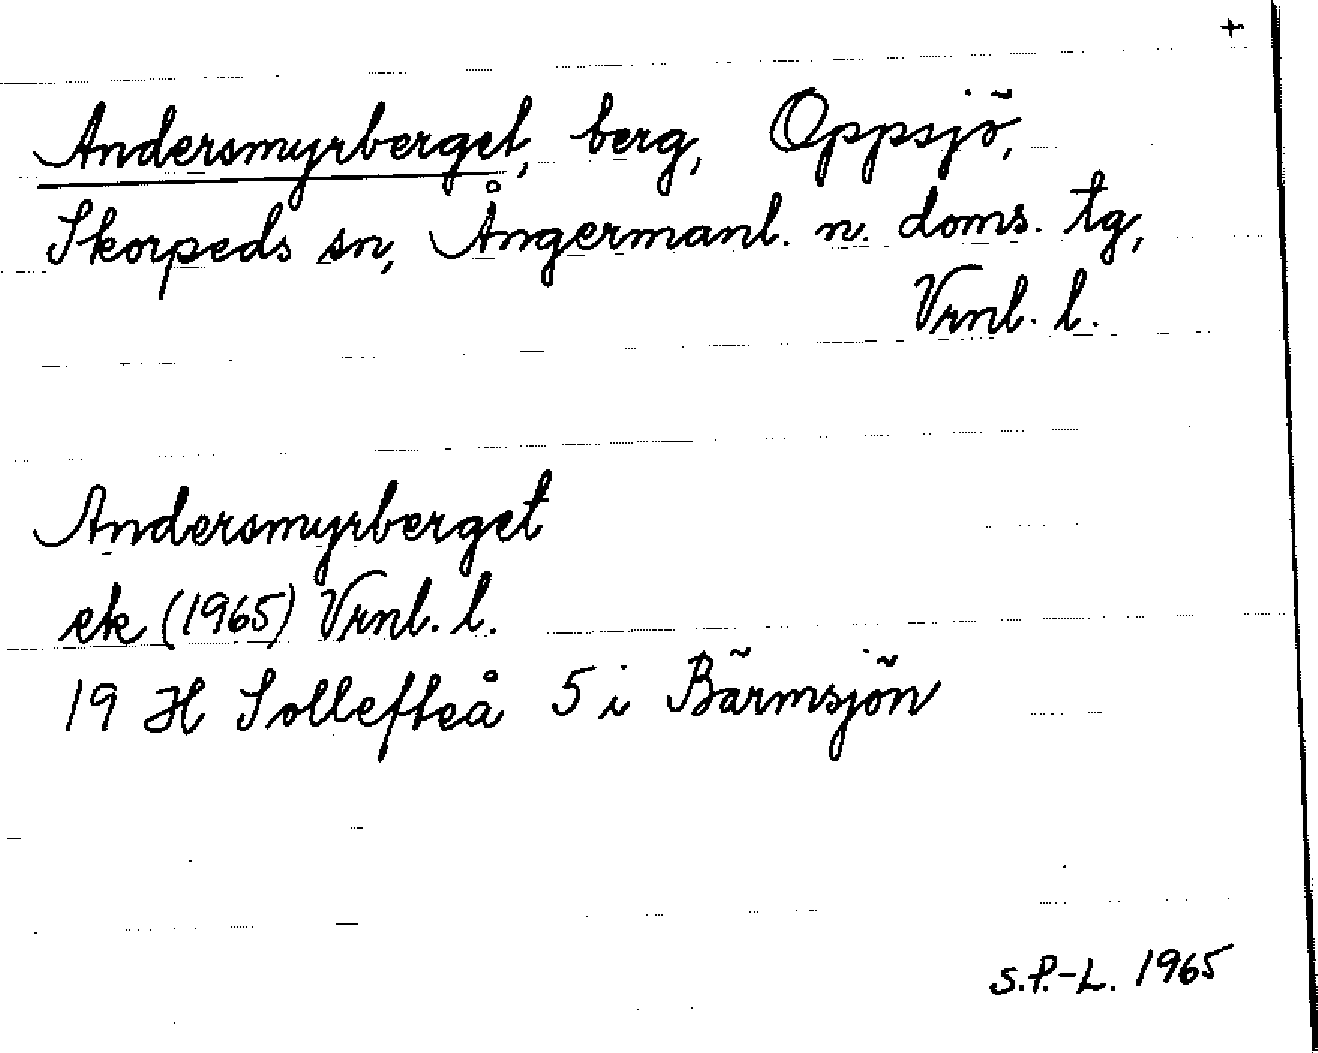 +
Andersmyrberget, berg, Oppsjö,
Skorpeds sn, Ångermanl. n. doms. tg,
Vrnl. l.
Andersmyrberget
ek (1965) Vrnl. l.
19 H Sollefteå 5 i Bärmsjön
S.P.-L. 1965